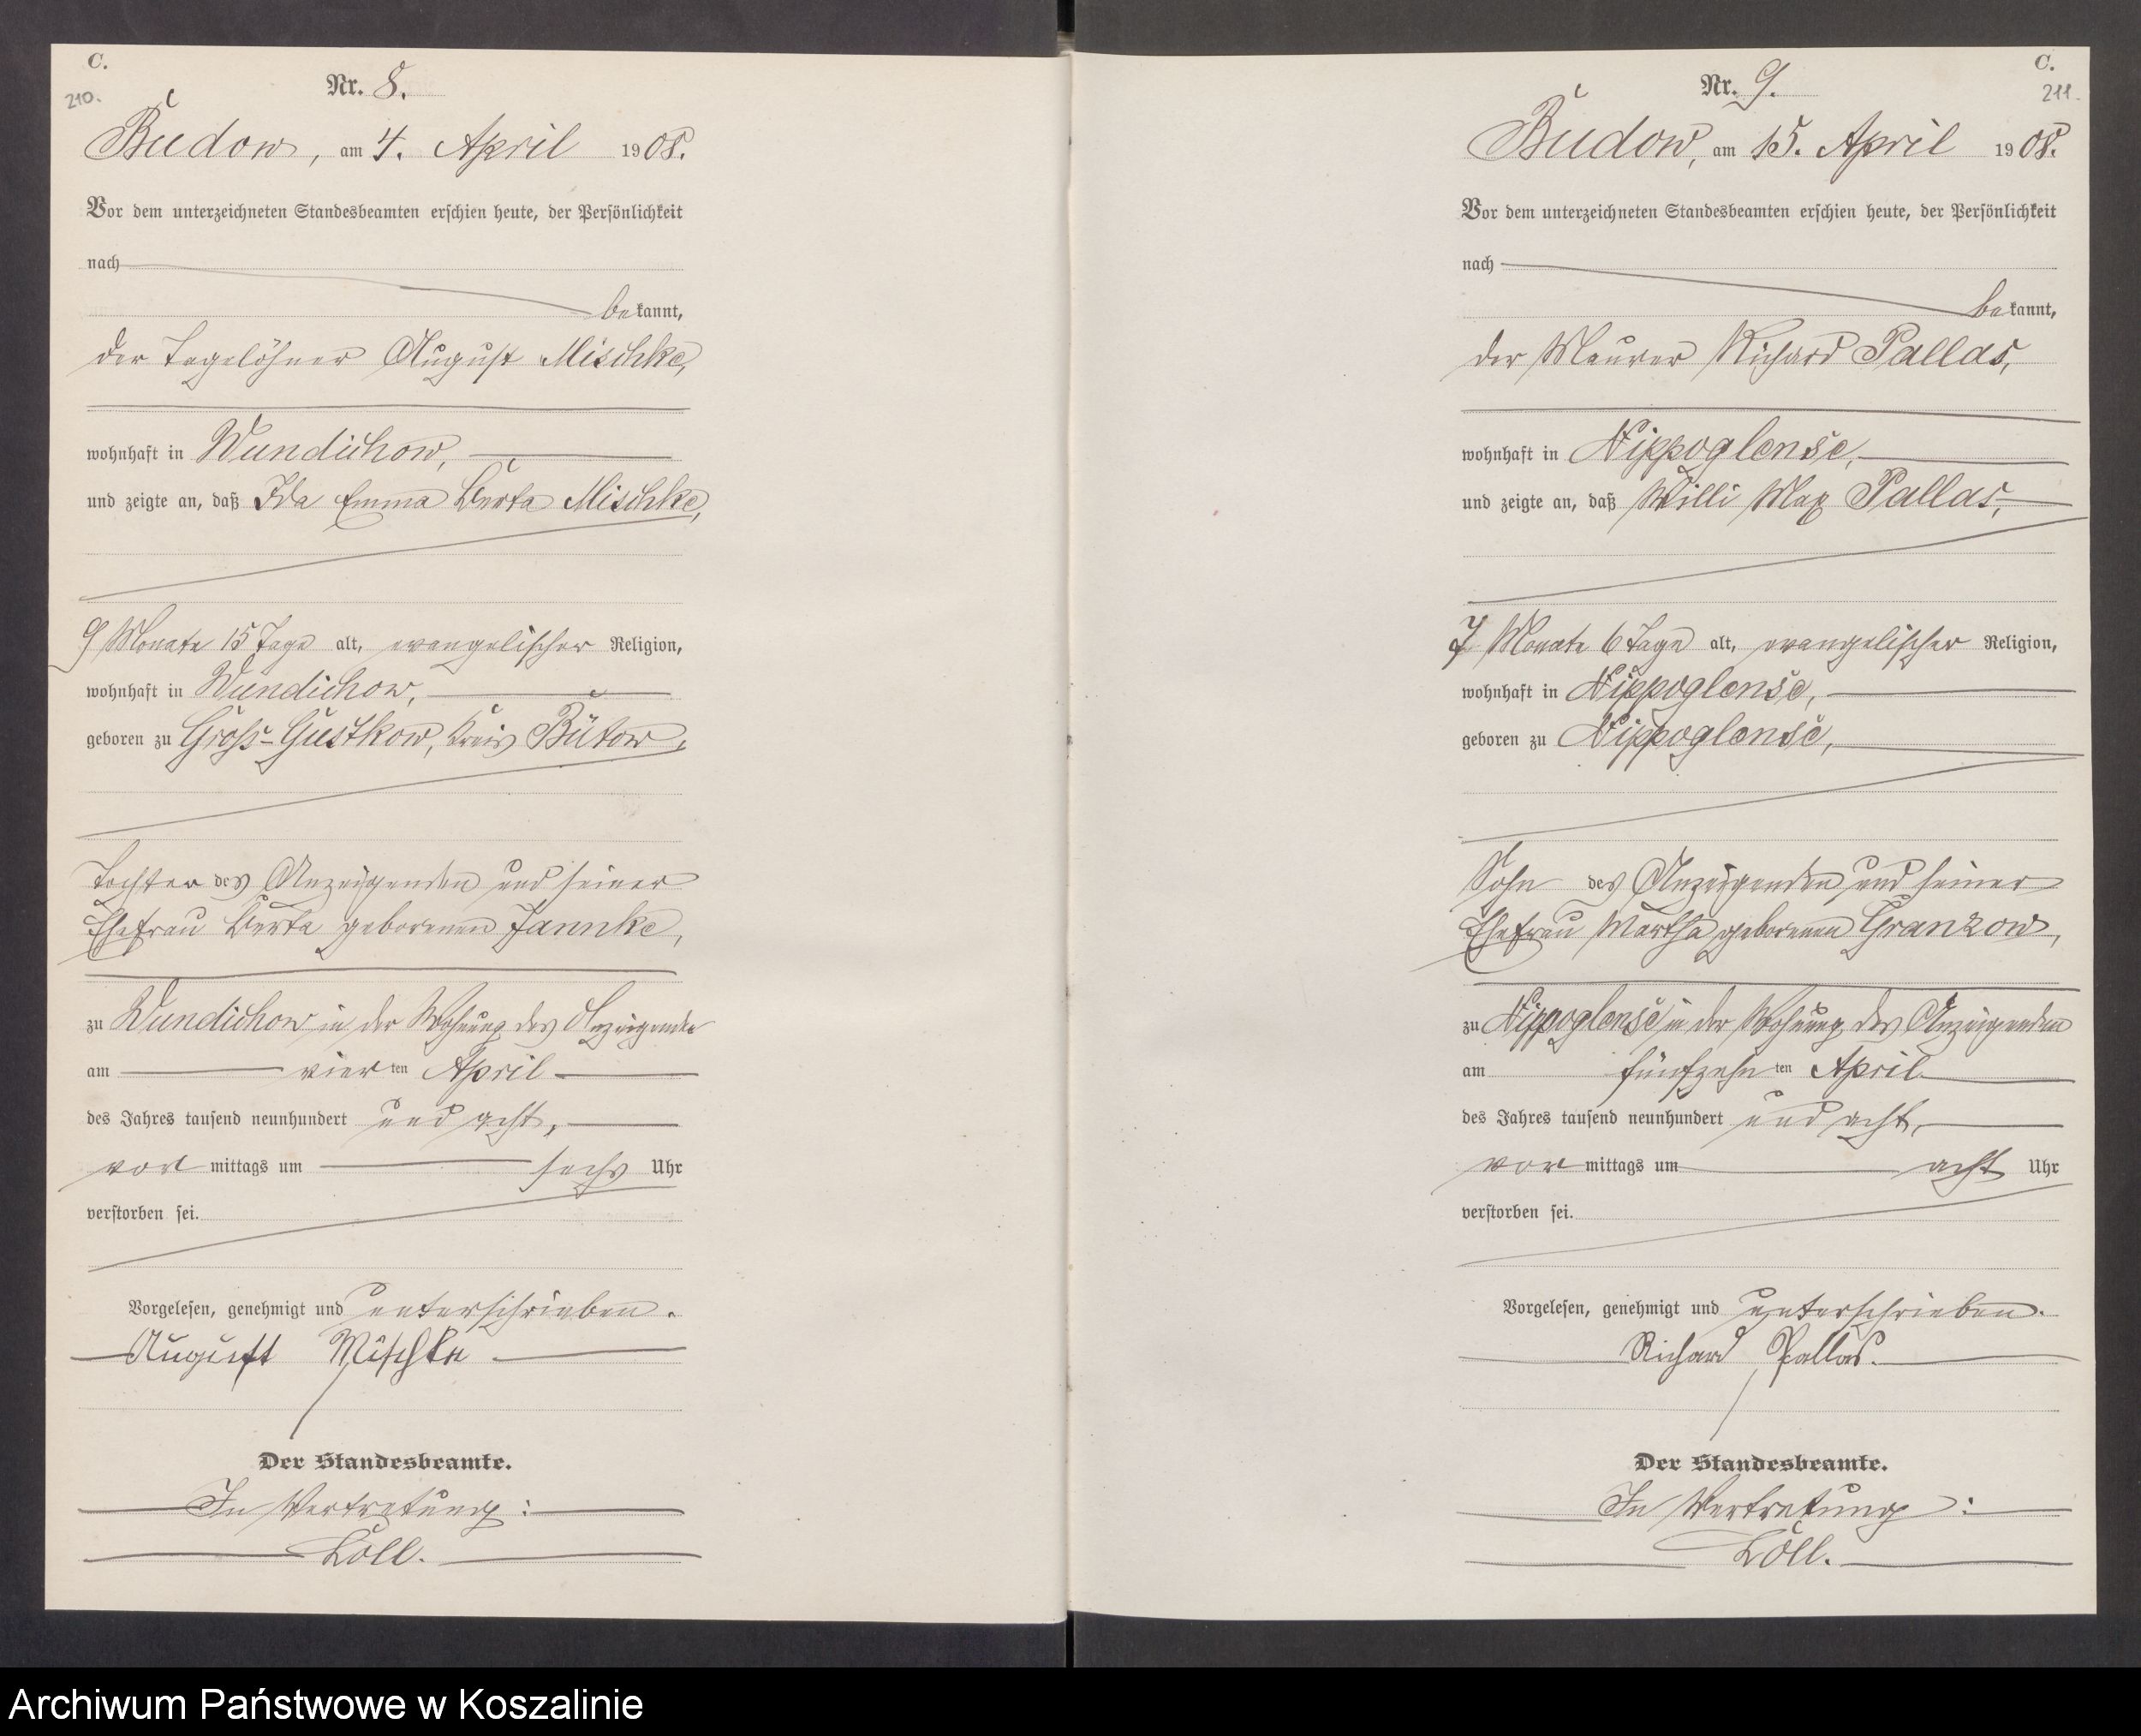 C.
210.
Nr. 8.
Budow, am 4. April 1908.
Vor dem unterzeichneten Standesbeamten erschien heute, der Persönlichkeit
nach
bekannt,
der Tagelöhner August Mischke,
wohnhaft in Wundichow,
und zeigte an, daß Ida Emma Berta Mischke,
9 Monate 15 Tage alt, evangelischer Religion,
wohnhaft in Wundichow,
geboren zu Groß-Gustkow, Kreis Bütow,
Tochter des Anzeigenden und seiner
Ehefrau Berta geborenen Jannke,
zu Wundichow in der Wohnung des Anzeigenden
am vierten April
des Jahres tausend neunhundert und acht,
vormittags um sechs Uhr
verstorben sei.
Vorgelesen, genehmigt und unterschrieben.
August Mischke
Der Standesbeamte.
In Vertretung:
Löll.
C.
211.
Nr. 9.
Budow, am 15. April 1908.
Vor dem unterzeichneten Standesbeamten erschien heute, der Persönlichkeit
nach
bekannt,
der Maurer Richard Pallas,
wohnhaft in Nippoglense,
und zeigte an, daß Willi Max Pallas,
7 Monate 6 Tage alt, evangelischer Religion,
wohnhaft in Nippoglense,
geboren zu Nippoglense,
Sohn des Anzeigenden und seiner
Ehefrau Martha geborenen Granzow,
zu Nippoglense in der Wohnung des Anzeigenden
am fünfzehnten April
des Jahres tausend neunhundert und acht,
vormittags um acht Uhr
verstorben sei.
Vorgelesen, genehmigt und unterschrieben.
Richard Pallas.
Der Standesbeamte.
In Vertretung:
Löll.
Archiwum Państwowe w Koszalinie